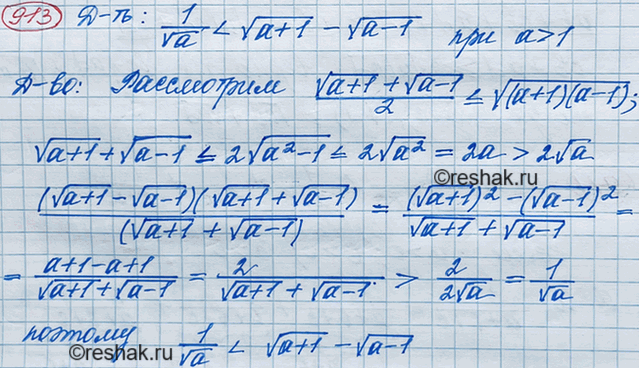 913 Д-ть: 1/√a < √(a+1) - √(a-1) при a>1
Д-во: Рассмотрим (√(a+1) + √(a-1))/2 ≤ √((a+1)(a-1));
√(a+1) + √(a-1) ≤ 2√(a²-1) ≤ 2√(a²) = 2a > 2√a
((√(a+1) - √(a-1))(√(a+1) + √(a-1)))/((√(a+1) + √(a-1))) = ((√(a+1))² - (√(a-1))²)/(√(a+1) + √(a-1)) =
= (a+1-a+1)/(√(a+1) + √(a-1)) = 2/(√(a+1) + √(a-1)) > 2/(2√a) = 1/√a
поэтому 1/√a < √(a+1) - √(a-1)
©reshak.ru
©reshak.ru
©reshak.ru